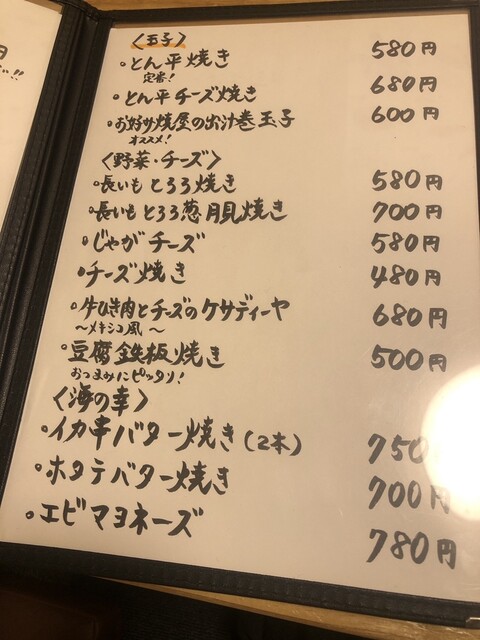 〈玉子〉
・とん平焼き 580円
定番！
・とん平チーズ焼き 680円
・お好み焼屋の出汁巻玉子 600円
オススメ！
〈野菜・チーズ〉
・長いもとろろ焼き 580円
・長いもとろろ葱月見焼き 700円
・じゃがチーズ 580円
・チーズ焼き 480円
・牛ひき肉とチーズのケサディーヤ 680円
～メキシコ風～
・豆腐鉄板焼き 500円
おつまみにピッタリ！
〈海の幸〉
・イカ串バター焼き(2本) 750円
・ホタテバター焼き 700円
・エビマヨネーズ 780円